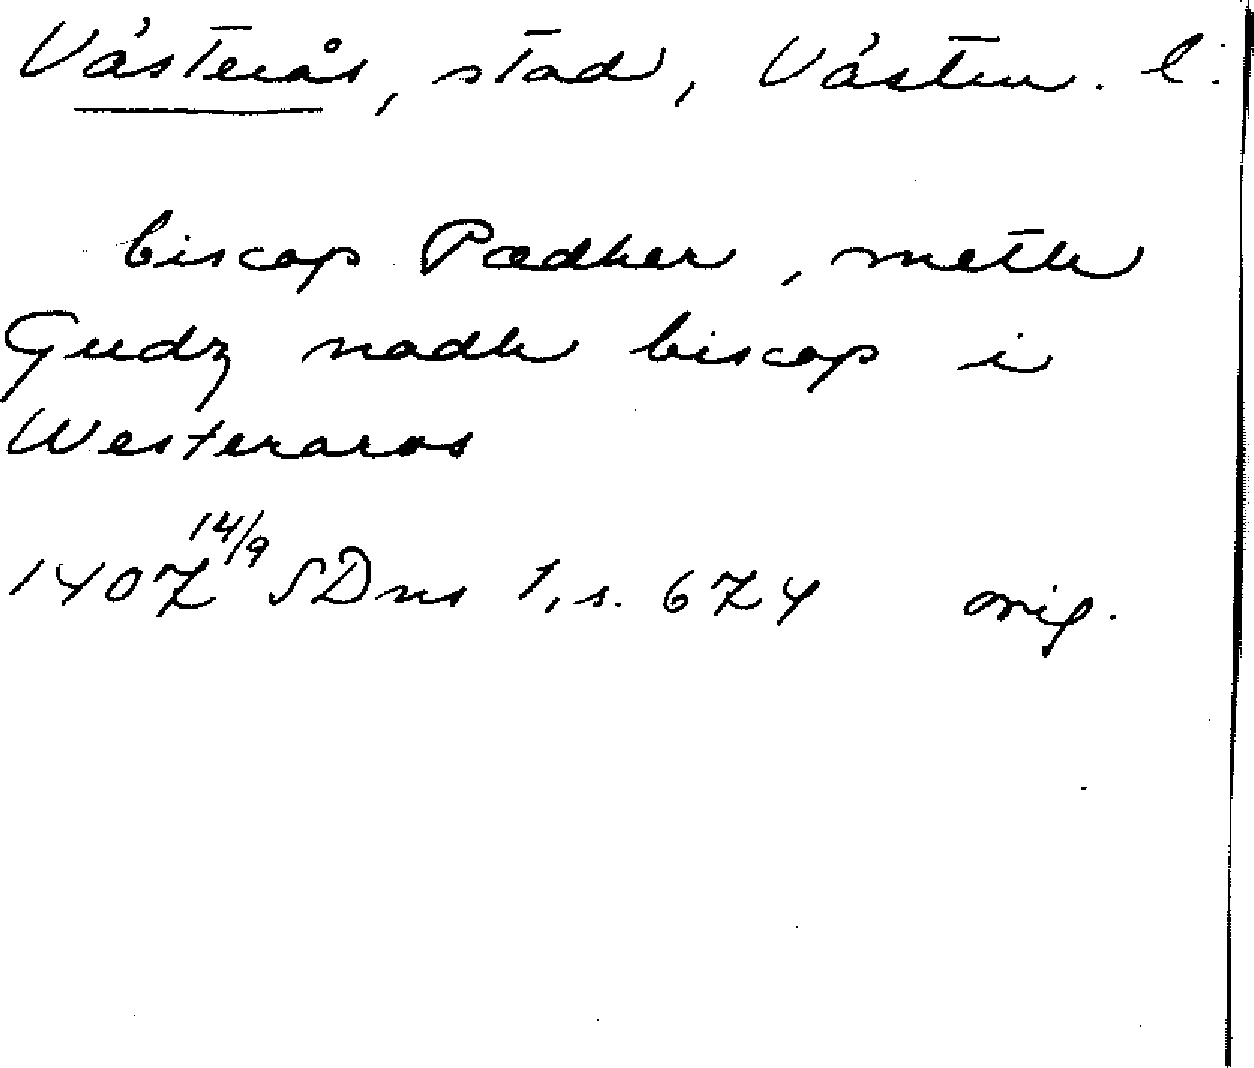 Västerås, stad, Västm. l.
biscap Pædher, meth
Gudz nadh biscop i
Westeraros
1407 14/9 SDns 1, s. 674 orig.